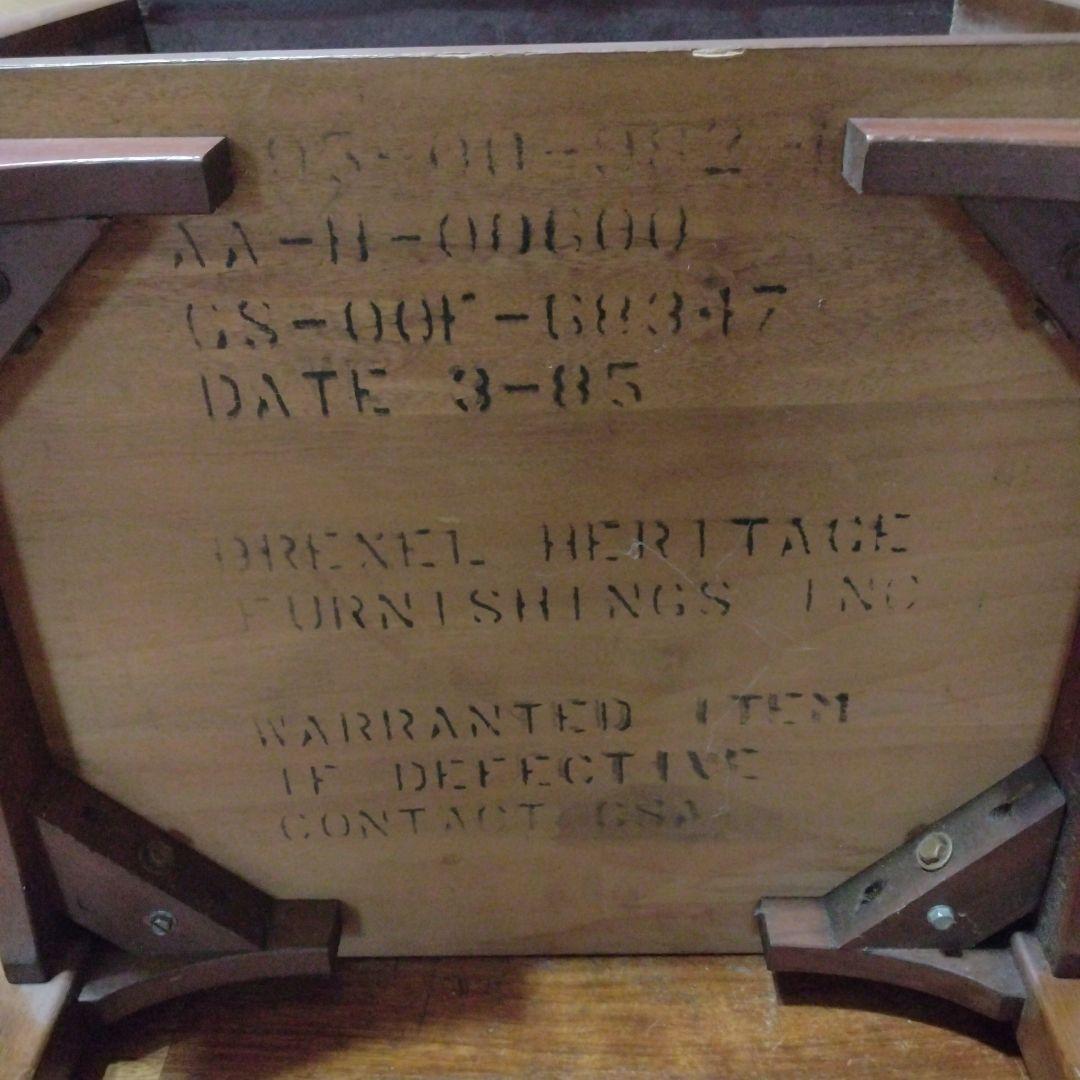 AA-H-00600
GS-00F-68347
DATE 3-85
DREXEL HERITAGE
FURNISHINGS INC
WARRANTED ITEM
IF DEFECTIVE
CONTACT GSA